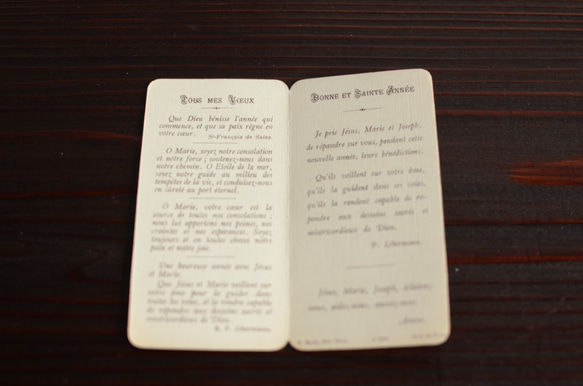 TOUS MES VŒUX
Que Dieu bénisse l'année qui
commence, et que sa paix règne en
votre cœur. St-François de Sales.
O Marie, soyez notre consolation
et notre force ; soutenez-nous dans
notre chemin. O Etoile de la mer,
soyez notre guide au milieu des
tempêtes de la vie, et conduisez-nous
en sûreté au port éternel.
O Marie, votre cœur est la
source de toutes nos consolations ;
nous lui apportons nos peines, nos
craintes et nos espérances. Soyez
toujours et en toutes choses notre
paix et notre joie.
Une heureuse année avec Jésus
et Marie.
Que Jésus et Marie veillent sur
votre âme pour la guider dans
toutes les voies, et la rendre capable
de répondre aux desseins sacrés et
miséricordieux de Dieu.
R. P. Libermann.
BONNE ET SAINTE ANNÉE
Je prie Jésus, Marie et Joseph,
de répandre sur vous, pendant cette
nouvelle année, leurs bénédictions.
Qu'ils veillent sur votre âme,
qu'ils la guident dans ses voies,
qu'ils la rendent capable de ré-
pondre aux desseins sacrés et
miséricordieux de Dieu.
P. Libermann.
Jésus, Marie, Joseph, éclairez-
nous, aidez-nous, sauvez-nous.